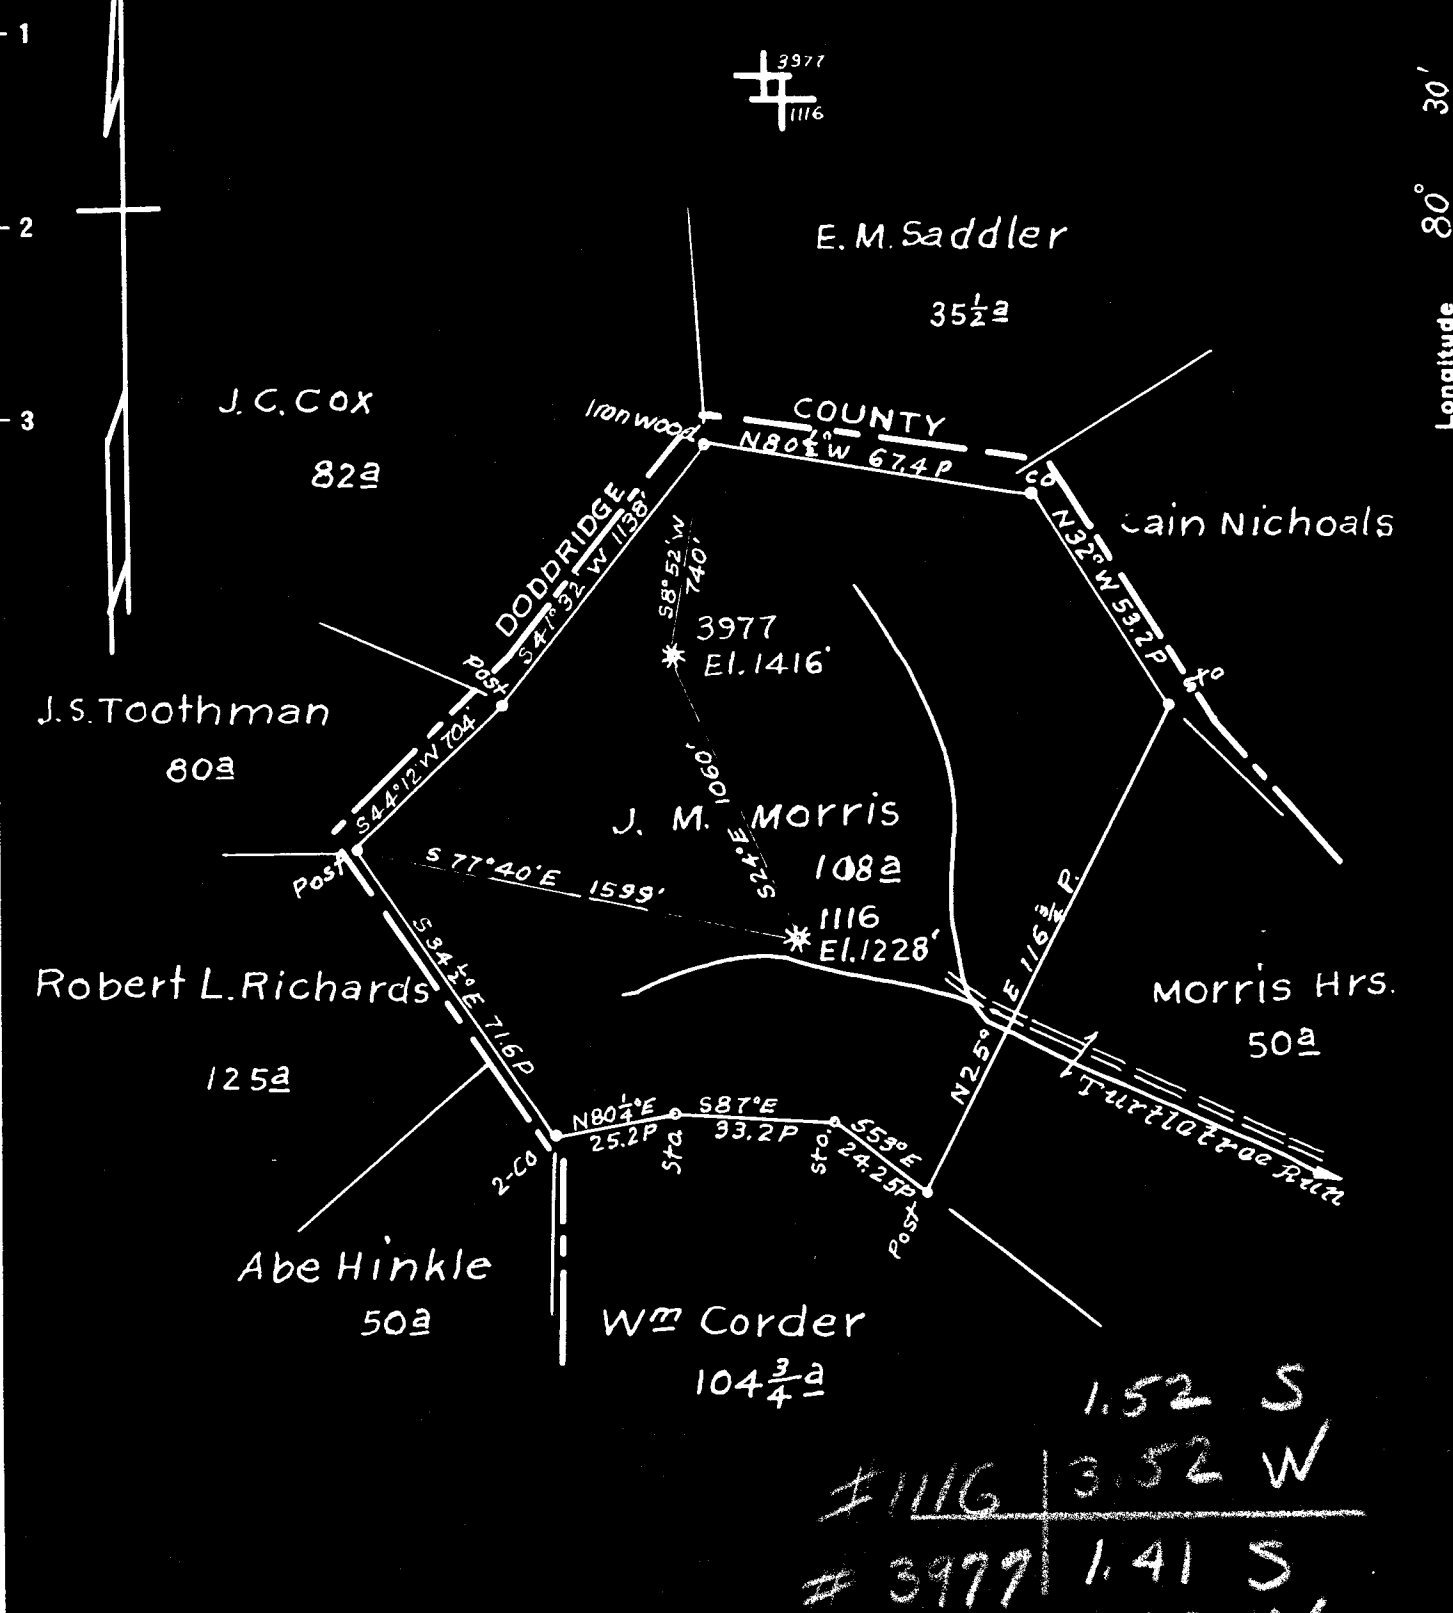 1
3977
1116
30'
80°
2
Longitude
E. M. Saddler
35 1/2 a
3
J. C. Cox
82 a
Ironwood
COUNTY
N80 1/2° W 67.4 P
co
N32° W 53.2 P
Cain Nichoals
DODDRIDGE
S41° 32' W 1138'
S8° 52' W
740'
3977
El. 1416'
Post
sto
J. S. Toothman
80 a
S44° 12' W 704'
S24° E 1060'
J. M. Morris
108 a
Post
S 77° 40' E 1599'
1116
El. 1228'
N25° E 116 3/4 P.
Robert L. Richards
125 a
S 34 1/2° E 71.6 P
Morris Hrs.
50 a
Turtletree Run
N80 1/4° E
25.2 P
Sta
S87° E
33.2 P
sto.
S53° E
24.25 P
Post
2-Co
Abe Hinkle
50 a
Wm Corder
104 3/4 a
1.52 S
#1116 3.52 W
# 3977 1.41 S